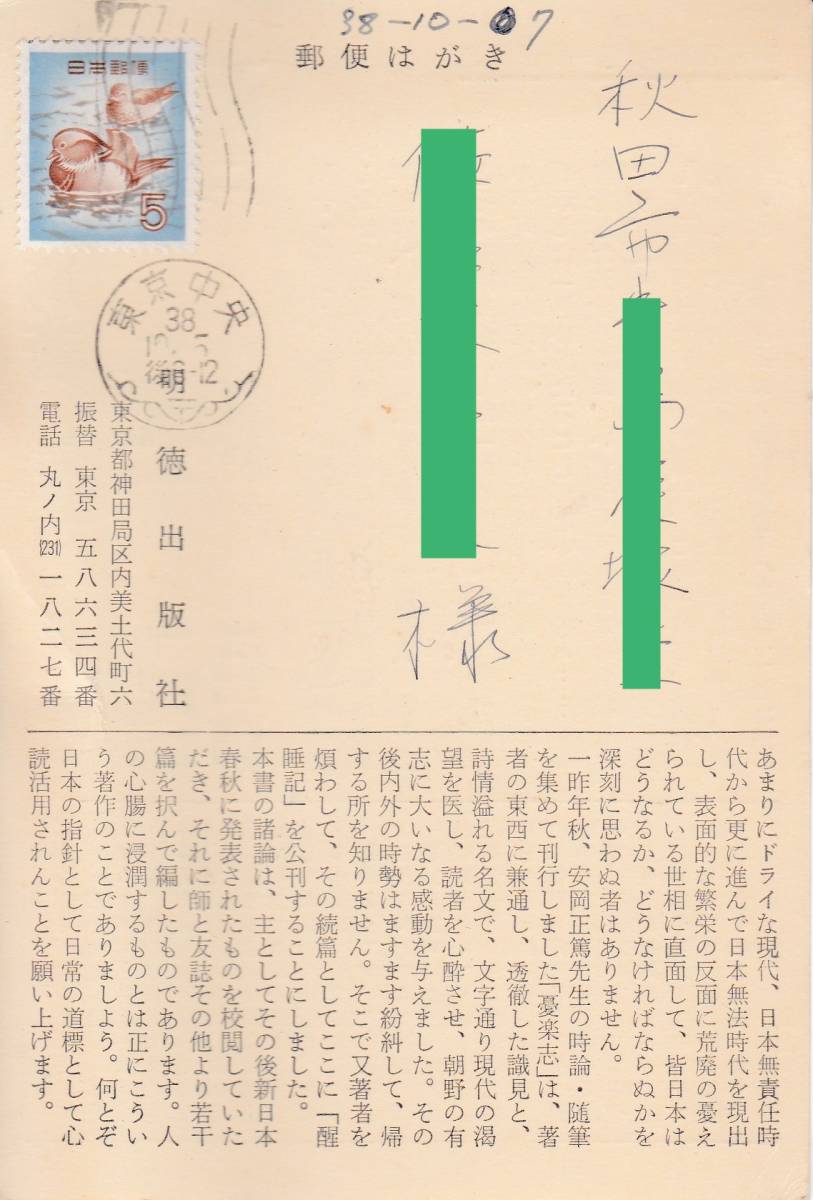 38-10-7
郵便はがき
日本郵便
5
秋田市
様
東京中央
38
明徳出版社
東京都神田局区内美土代町六
振替 東京 五八六三四番
電話 丸ノ内(231)一八二七番
あまりにドライな現代、日本無責任時
代から更に進んで日本無法時代を現出
し、表面的な繁栄の反面に荒廃の憂え
られている世相に直面して、皆日本は
どうなるか、どうなければならぬかを
深刻に思わぬ者はありません。
一昨年秋、安岡正篤先生の時論・随筆
を集めて刊行しました「憂楽志」は、著
者の東西に兼通し、透徹した識見と、
詩情溢れる名文で、文字通り現代の渇
望を医し、読者を心酔させ、朝野の有
志に大いなる感動を与えました。その
後内外の時勢はますます紛糾して、帰
する所を知りません。そこで又著者を
煩わして、その続篇としてここに「醒
睡記」を公刊することにしました。
本書の諸論は、主としてその後新日本
春秋に発表されたものを校閲していた
だき、それに師と友誌その他より若干
篇を択んで編したものであります。人
の心腸に浸潤するものとは正にこうい
う著作のことでありましよう。何とぞ
日本の指針として日常の道標として心
読活用されんことを願い上げます。